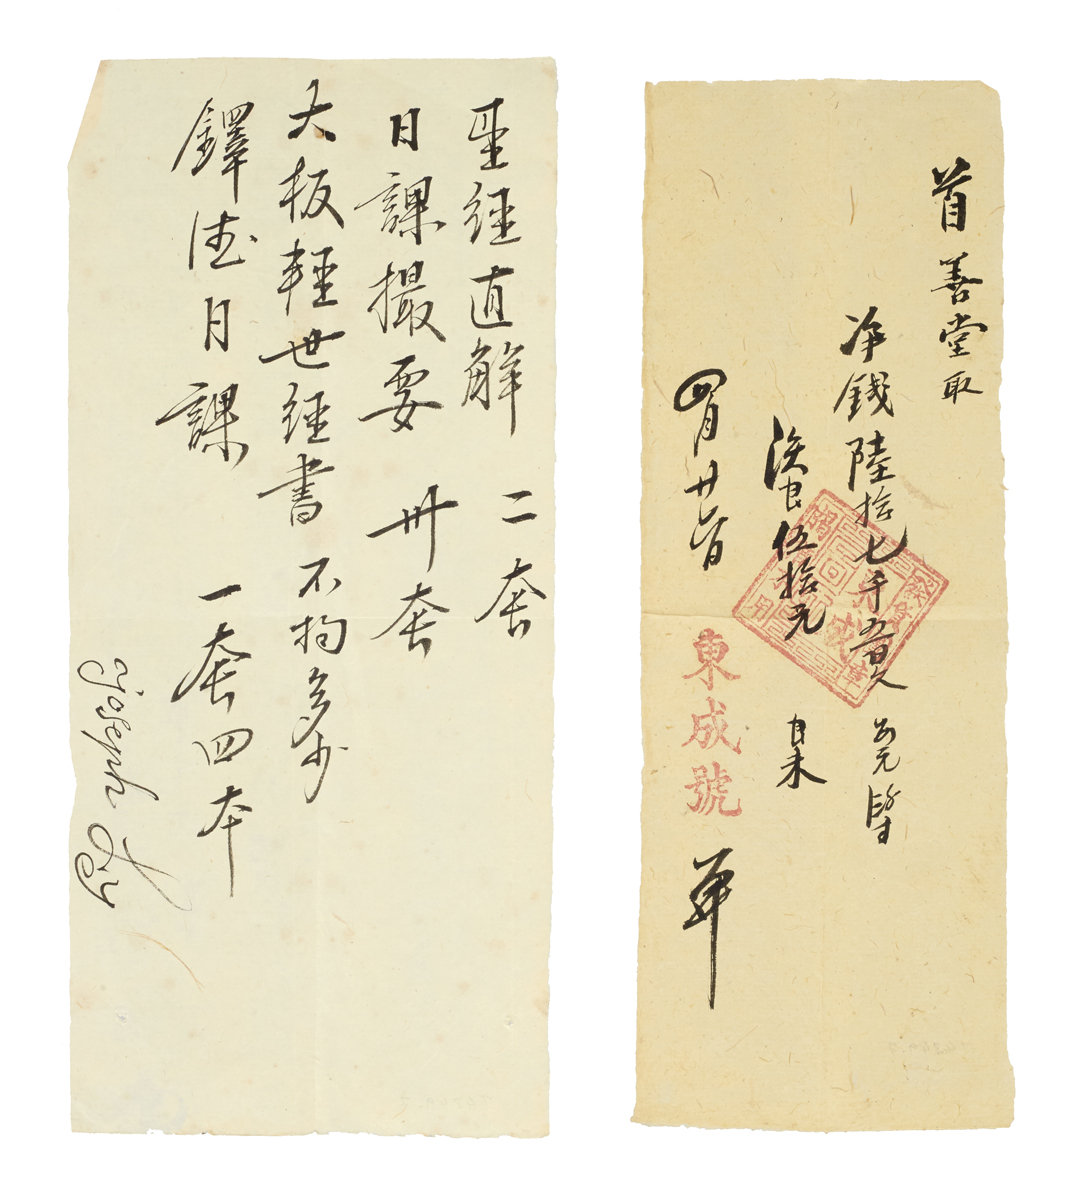 聖經直解 二套
日課撮要 卅套
大板輕世經書 不拘多少
鐸德日課 一套四本
Joseph
首善堂取
净錢陸拾七千五百文
伍拾元
四月廿
東成號
單
東成